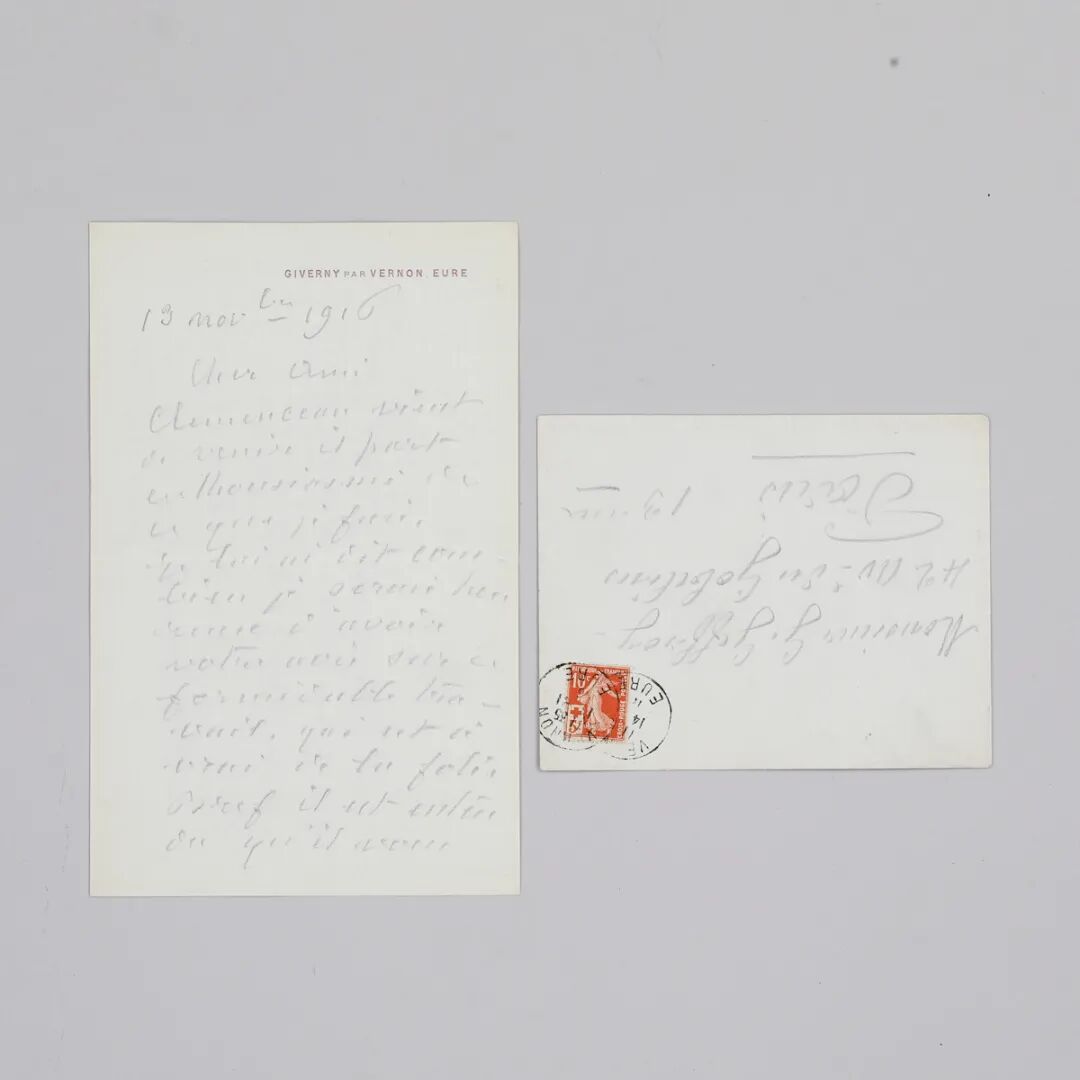 GIVERNY PAR VERNON. EURE
13 novbre 1916
Cher Ami
Clemenceau vient
de venir il part
enthousiasmé de
ce que je fais,
je lui ai dit com-
bien je serais heu
reux d'avoir
votre avis sur ce
formidable tra-
vail, qui est à
vrai de la folie
Bref il est enten
du qu'il vous
Monsieur G. Geffroy
42 Av. des Gobelins
Paris
VERNON
EURE
14
10
CROIX-ROUGE